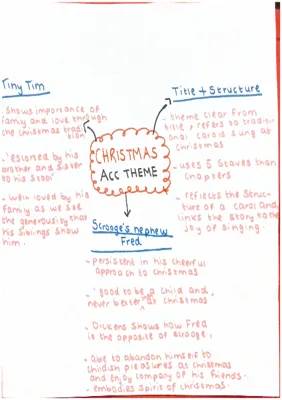 Tiny Tim
- Shows importance of
family and love through
the christmas trad
ition
- 'restored by his
brother and sister
to his stool'
- well loved by his
family as we see
the generousity that
his siblings show
him.
CHRISTMAS
ACC THEME
Title + Structure
- theme clear from
title, refers to traditi-
onal carols sung at
christmas
- uses 5 staves than
chapters
- reflects the struc-
ture of a carol and
links the story to the
joy of singing.
Scrooge's nephew
Fred
- persistent in his cheerful
approach to christmas
- 'good to be a child and
never better at christmas'
than
- Dickens shows how Fred
is the opposite of scrooge.
- able to abandon himself to
childish pleasures at christmas
and enjoy company of his friends.
- embodies spirit of christmas.